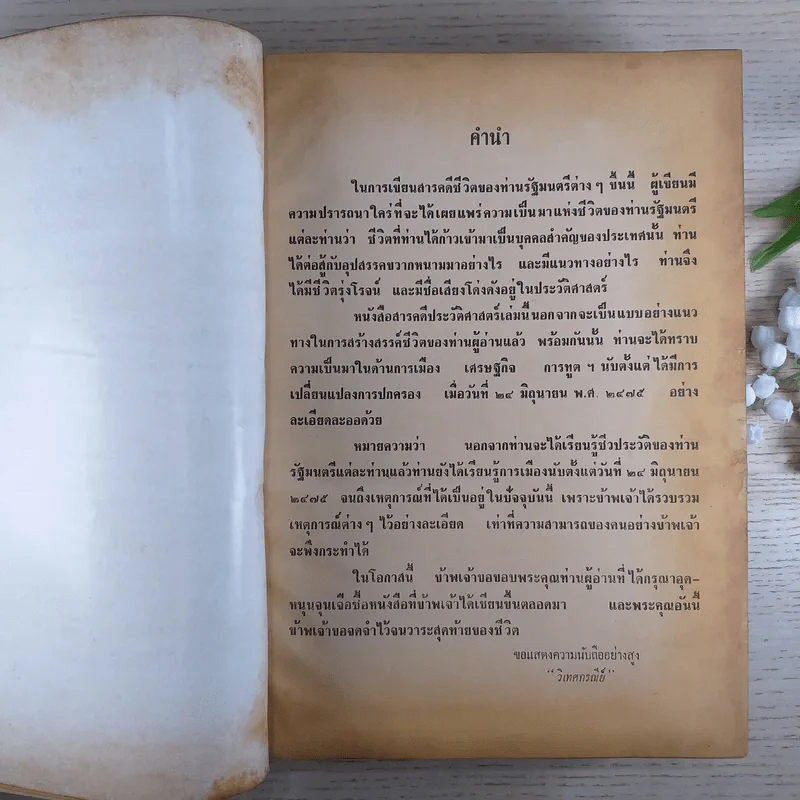 คำนำ
ในการเขียนสารคดีชีวิตของท่านรัฐมนตรีต่าง ๆ ขึ้นนี้ ผู้เขียนมี
ความปรารถนาใคร่ที่จะได้เผยแพร่ความเป็นมาแห่งชีวิตของท่านรัฐมนตรี
แต่ละท่านว่า ชีวิตที่ท่านได้ก้าวเข้ามาเป็นบุคคลสำคัญของประเทศนั้น ท่าน
ได้ต่อสู้กับอุปสรรคขวากหนามมาอย่างไร และมีแนวทางอย่างไร ท่านจึง
ได้มีชีวิตรุ่งโรจน์ และมีชื่อเสียงโด่งดังอยู่ในประวัติศาสตร์
หนังสือสารคดีประวัติศาสตร์เล่มนี้นอกจากจะเป็นแบบอย่างแนว
ทางในการสร้างสรรค์ชีวิตของท่านผู้อ่านแล้ว พร้อมกันนั้น ท่านจะได้ทราบ
ความเป็นมาในด้านการเมือง เศรษฐกิจ การทูต ฯ นับตั้งแต่ได้มีการ
เปลี่ยนแปลงการปกครอง เมื่อวันที่ ๒๔ มิถุนายน พ.ศ. ๒๔๗๕ อย่าง
ละเอียดละออด้วย
หมายความว่า นอกจากท่านจะได้เรียนรู้ชีวประวัติของท่าน
รัฐมนตรีแต่ละท่านแล้วท่านยังได้เรียนรู้การเมืองนับตั้งแต่วันที่ ๒๔ มิถุนายน
๒๔๗๕ จนถึงเหตุการณ์ที่ได้เป็นอยู่ในปัจจุบันนี้ เพราะข้าพเจ้าได้รวบรวม
เหตุการณ์ต่าง ๆ ไว้อย่างละเอียด เท่าที่ความสามารถของคนอย่างข้าพเจ้า
จะพึงกระทำได้
ในโอกาสนี้ ข้าพเจ้าขอขอบพระคุณท่านผู้อ่านที่ได้กรุณาอุด-
หนุนจุนเจือซื้อหนังสือที่ข้าพเจ้าได้เขียนขึ้นตลอดมา และพระคุณอันนี้
ข้าพเจ้าขอจดจำไว้จนวาระสุดท้ายของชีวิต
ขอแสดงความนับถืออย่างสูง
"วิเทศกรณีย์"